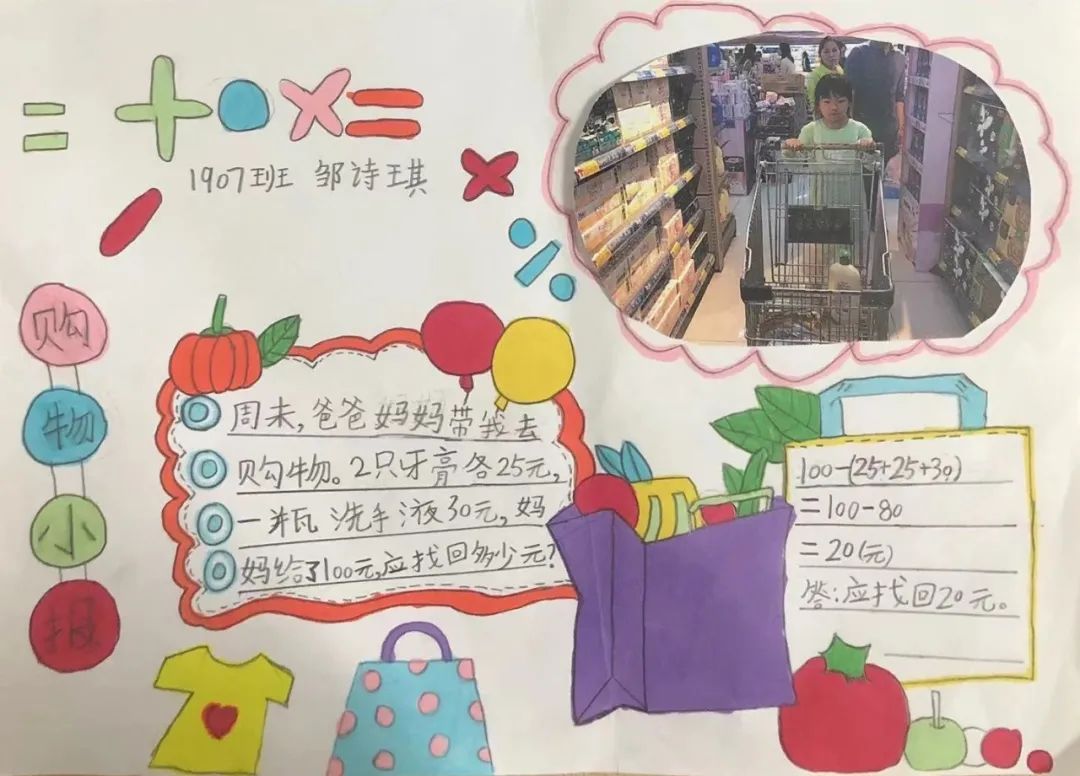 1907班 邹诗琪
购
物
小
报
周末,爸爸妈妈带我去
购物。2只牙膏各25元,
一瓶洗手液30元,妈
妈给了100元,应找回多少元?
100-(25+25+30)
=100-80
=20(元)
答:应找回20元。